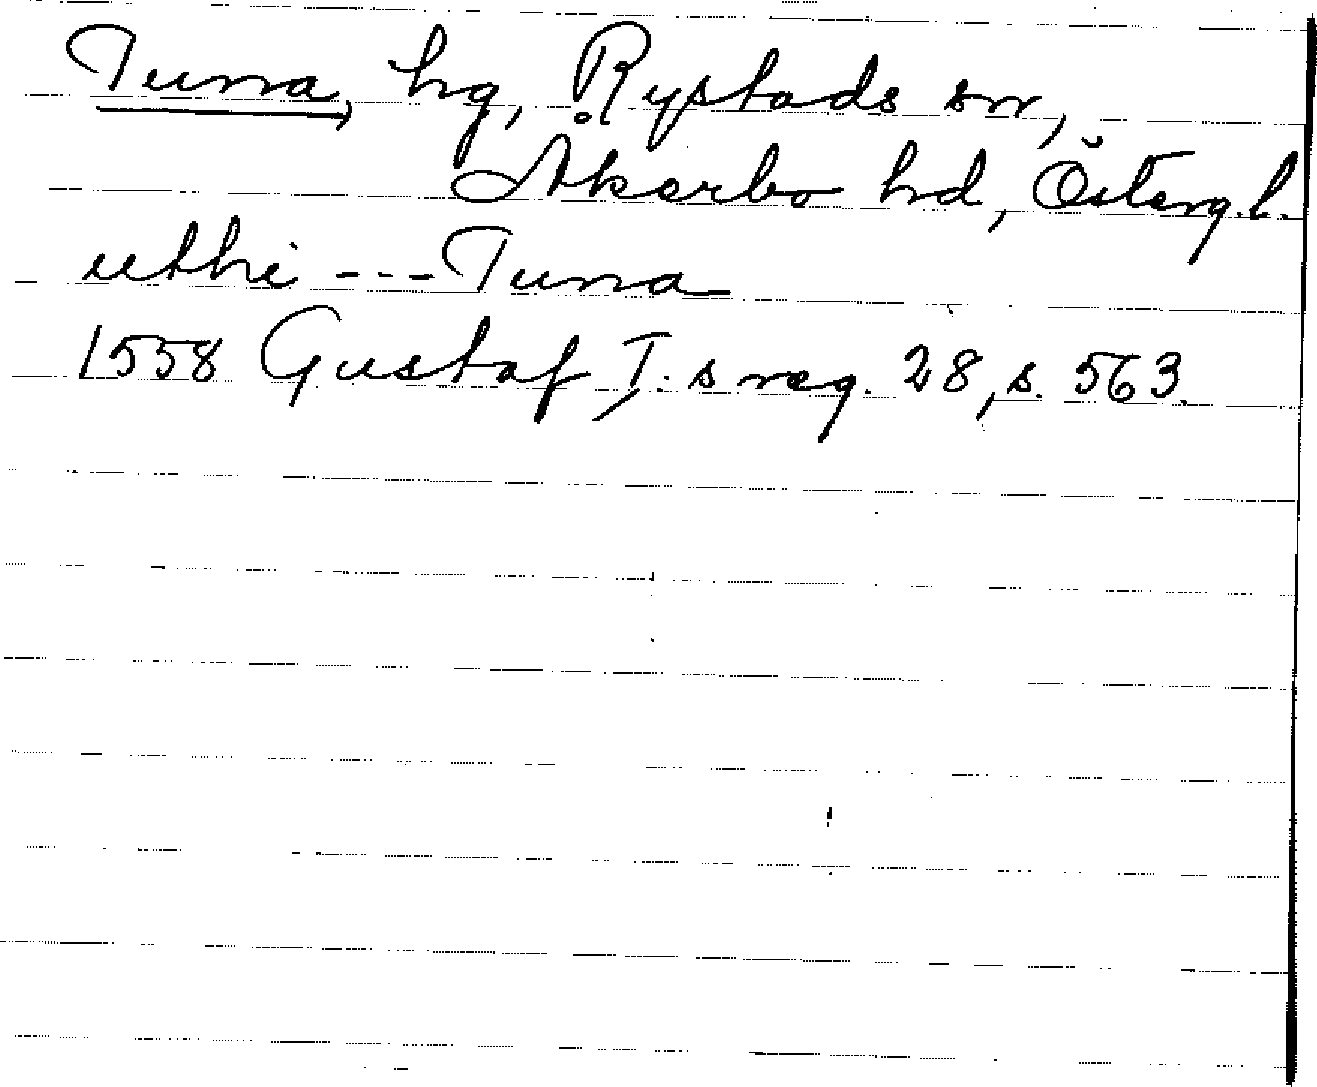 Tuna, hg, Rystads sn,
Åkerbo hd, Östergl.
uthi --- Tuna
1558 Gustaf I:s reg. 28, s. 563.